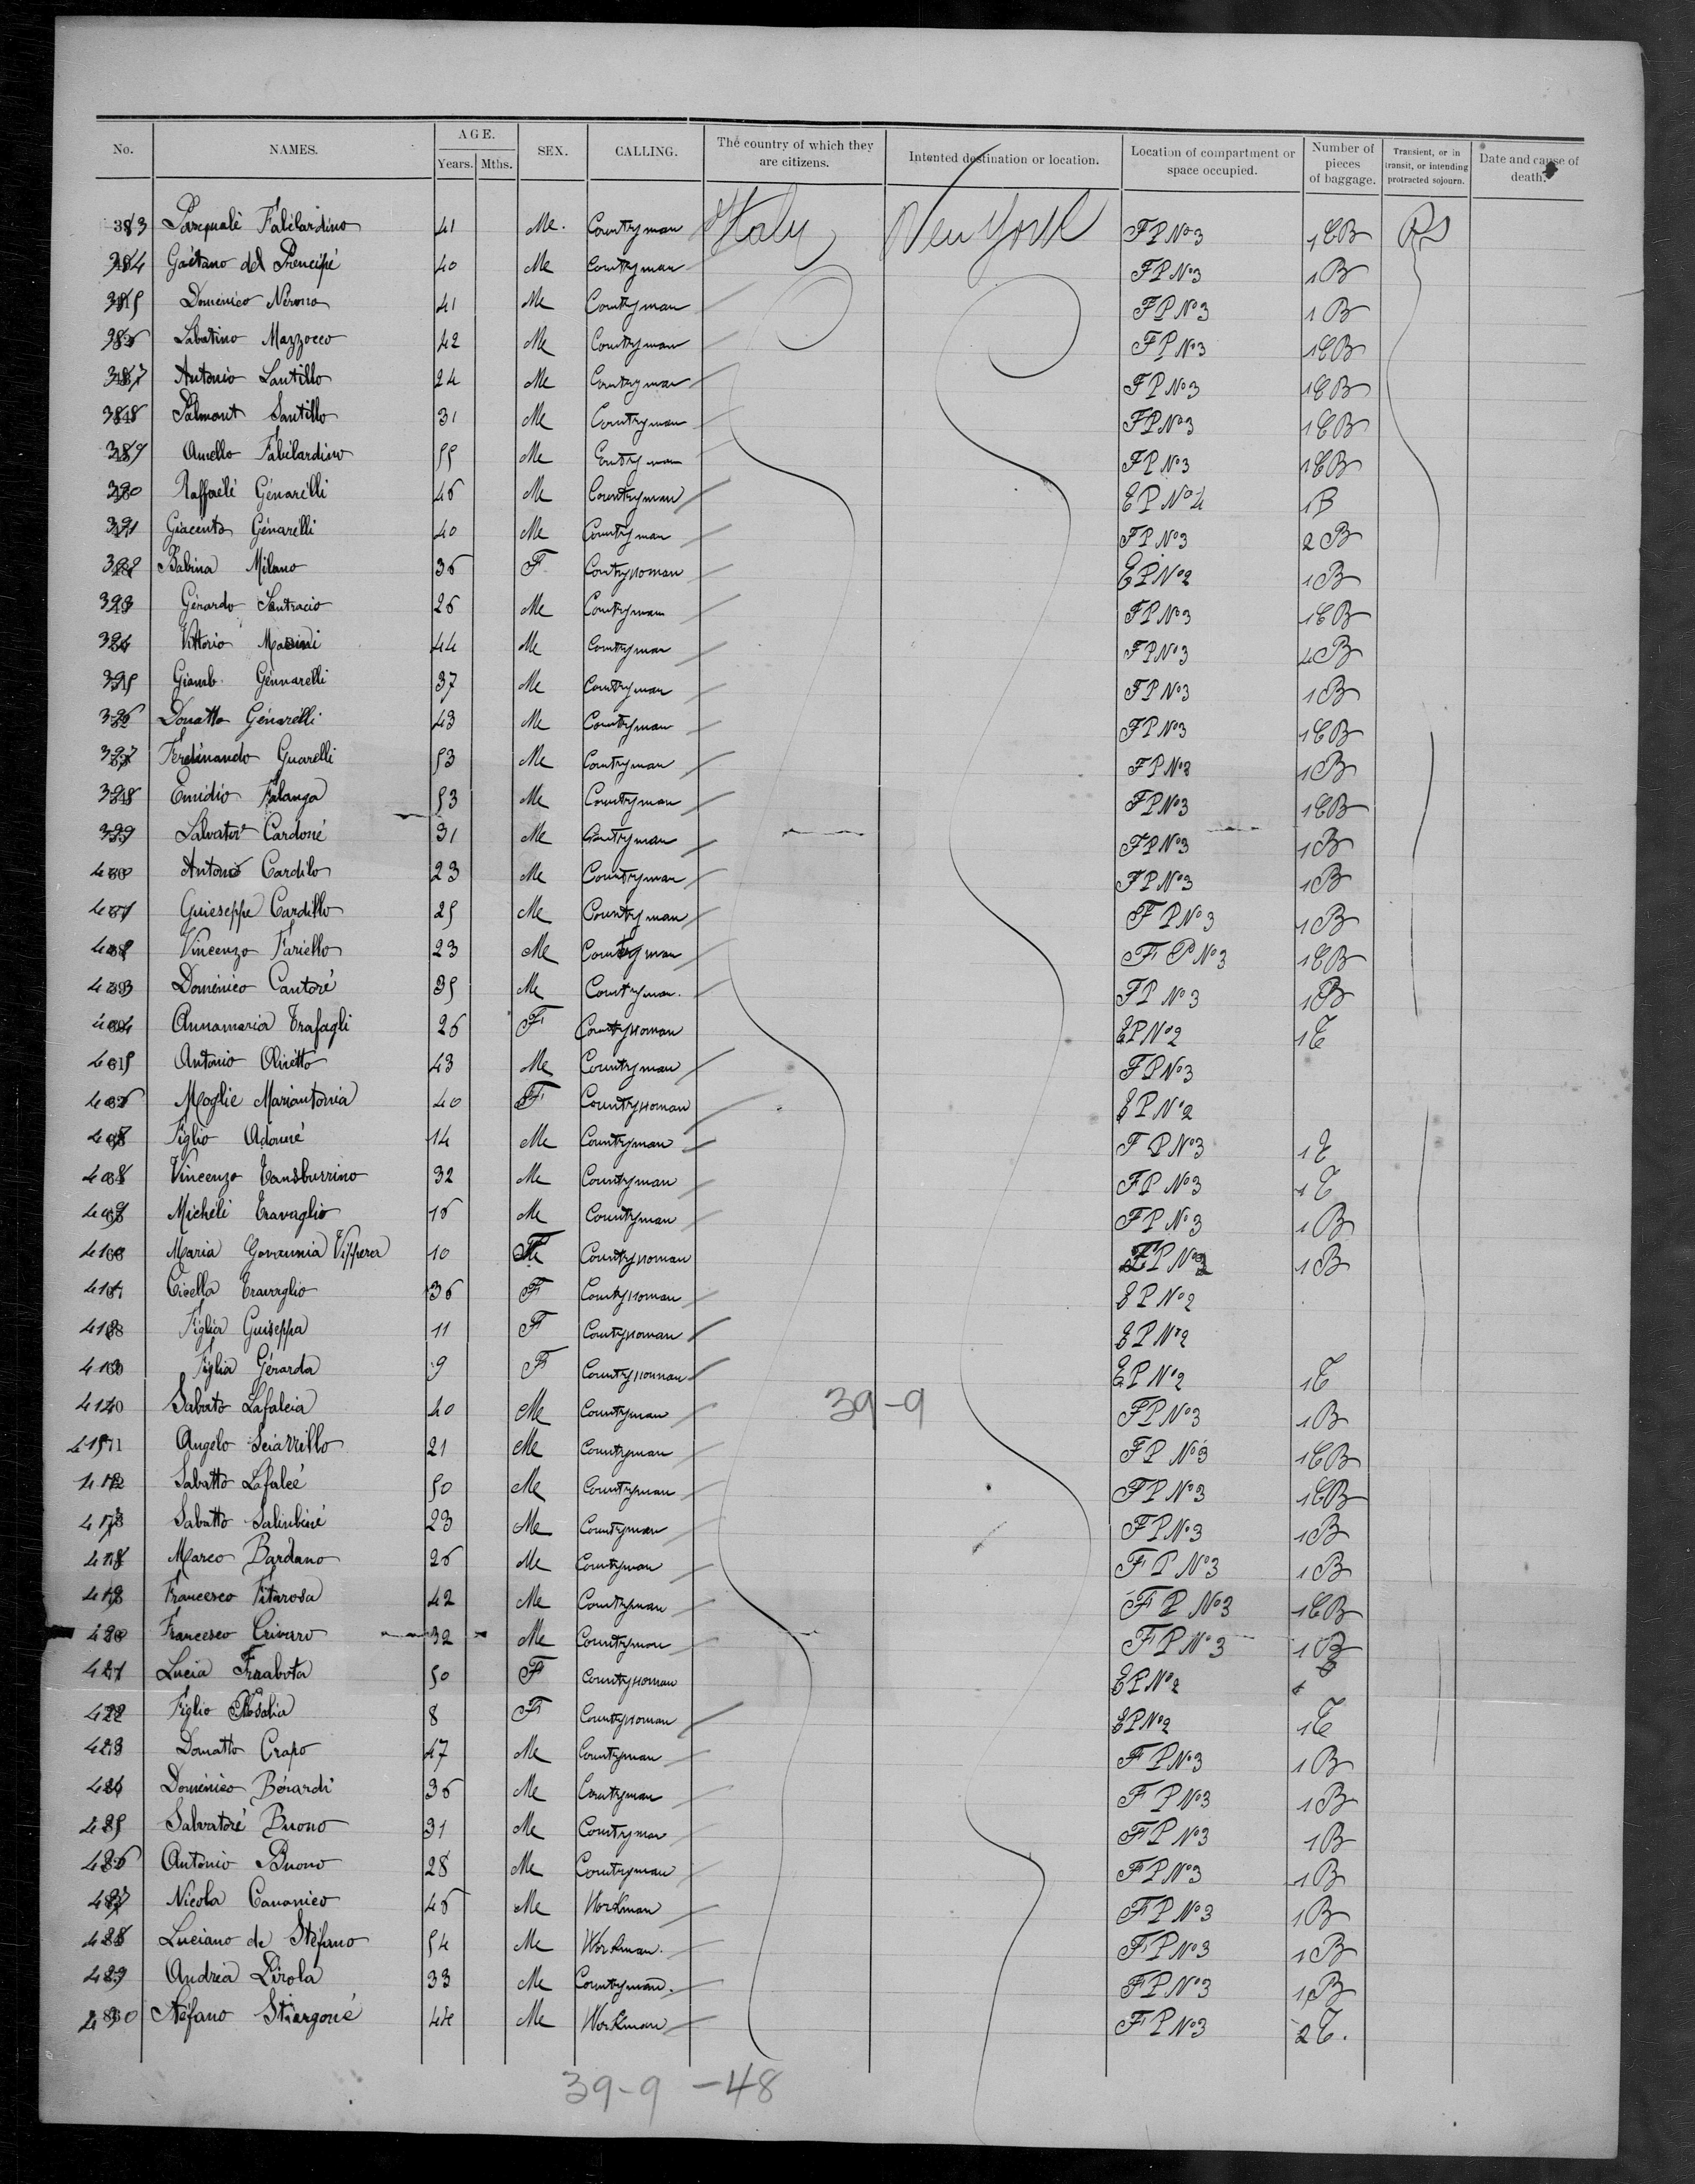 No. NAMES. AGE. Years. Mths. SEX. CALLING. The country of which they are citizens. Intented destination or location. Location of compartment or space occupied. Number of pieces of baggage. Transient, or in transit, or intending protracted sojourn. Date and cause of death.
383 Pasqualé Falilardino 41 Me. Countryman Italy New York FP No3 1CB PS
384 Gaétano del Prencipé 40 Me Countryman FP No3 1B
385 Domenico Nerono 41 Me Countryman FP No3 1B
386 Sabatino Mazzocco 42 Me Countryman FP No3 1CB
387 Antonio Santillo 24 Me Countryman FP No3 1CB
388 Palmont Santillo 31 Me Countryman FP No3 1CB
389 Amello Falilardino 55 Me Countryman FP No3 1CB
390 Raffaélé Génarélli 46 Me Countryman EP No4 1B
391 Giacento Génarélli 40 Me Countryman FP No3 2B
392 Babina Milano 36 F Countrywoman EP No2 1B
393 Gérardo Santracio 26 Me Countryman FP No3 1CB
394 Vittorio 44 Me Countryman FP No3 4B
395 Giamb. Génnarelli 37 Me Countryman FP No3 1B
396 Donatto Génarélli 43 Me Countryman FP No3 1CB
397 Ferdinando Guarelli 53 Me Countryman FP No3 1B
398 Emidio Falanga 53 Me Countryman FP No3 1CB
399 Salvator Cardoné 31 Me Countryman FP No3 1B
400 Antonio Cardilo 23 Me Countryman FP No3 1B
401 Guieseppe Cardillo 25 Me Countryman FP No3 1B
402 Vincenzo Fariello 23 Me Countryman FP No3 1CB
403 Doménico Cantoré 35 Me Countryman. FP No3 1B
404 Annamaria Trafagli 26 F Countrywoman EP No2 1C
405 Antonio Olivétto 43 Me Countryman FP No3
406 Moglie Mariantonia 40 F Countrywoman EP No2
407 Figlio Adouné 14 Me Countryman FP No3 1C
408 Vincenzo Tansburrino 32 Me Countryman FP No3 1C
409 Michéli Travaglio 16 Me Countryman FP No3 1B
410 Maria Govannia Viffrera 10 F Countrywoman EP No2 1B
411 Cicella Travaglio 36 F Countrywoman EP No2
412 Figlia Guiseppa 11 F Countrywoman EP No2
413 Figlia Gérarda 9 F Countrywoman EP No2 1C
414 Sabato Lafalcia 40 Me Countryman 39-9 FP No3 1B
415 Angelo Sciarrillo 21 Me Countryman FP No3 1CB
416 Sabatto Lafalcé 50 Me Countryman FP No3 1CB
417 Sabatto Salinbéné 23 Me Countryman FP No3 1B
418 Marco Bardano 26 Me Countryman FP No3 1B
419 Francesco Fitarosa 42 Me Countryman FP No3 1CB
420 Francesco Crivaro 32 Me Countryman FP No3 1B
421 Lucia Frrabota 50 F Countrywoman EP No2
422 Figlio Rosalia 8 F Countrywoman EP No2 1C
423 Donatto Crapo 47 Me Countryman FP No3 1B
424 Doménico Bérardi 36 Me Countryman FP No3 1B
425 Salvatoré Buono 31 Me Countryman FP No3 1B
426 Antonio Buono 28 Me Countryman FP No3 1B
427 Nicola Cananico 46 Me Workman FP No3 1B
428 Luciano de Stéfano 54 Me Workman. FP No3 1B
429 Andréa Pirola 33 Me Countryman. FP No3 1B
430 Stéfano Striargoné 44 Me Workman FP No3 2C.
39-9 -48